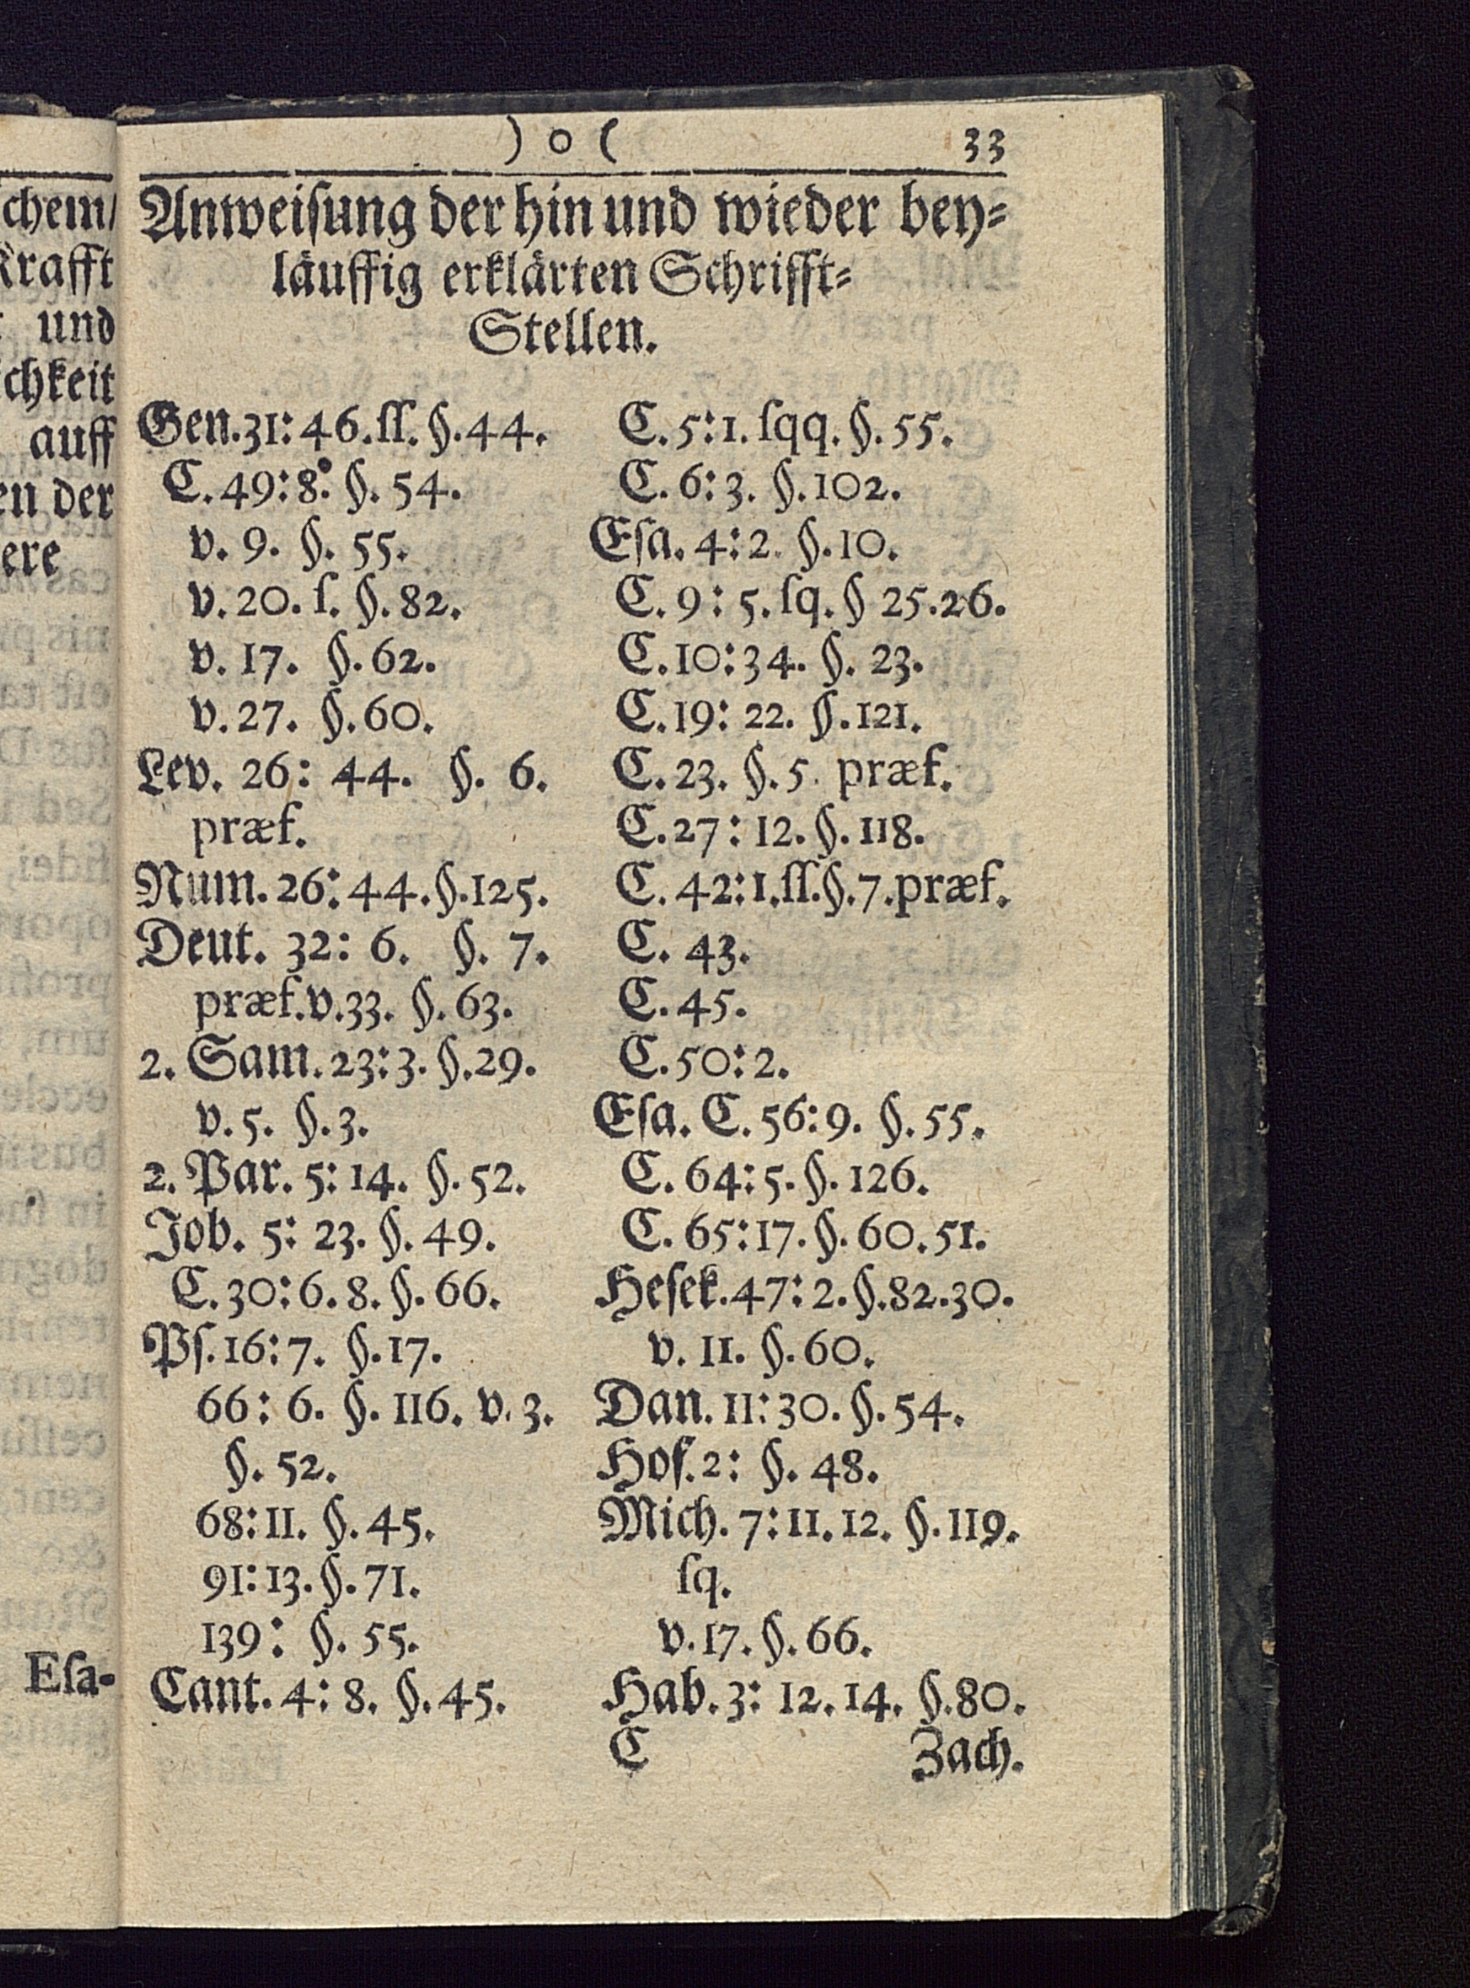 ) o (
33
Anweiſung der hin und wieder bey⸗
läuffig erklärten Schrifft⸗
Stellen.
Gen. 31: 46. ſſ. §. 44.
C. 49: 8. §. 54.
v. 9. §. 55.
v. 20. ſ. §. 82.
v. 17. §. 62.
v. 27. §. 60.
Lev. 26: 44. §. 6.
præf.
Num. 26: 44. §. 125.
Deut. 32: 6. §. 7.
præf. v. 33. §. 63.
2. Sam. 23: 3. §. 29.
v. 5. §. 3.
2. Par. 5: 14. §. 52.
Job. 5: 23. §. 49.
C. 30: 6. 8. §. 66.
Pſ. 16: 7. §. 17.
66: 6. §. 116. v. 3.
§. 52.
68: 11. §. 45.
91: 13. §. 71.
139: §. 55.
Cant. 4: 8. §. 45.
C. 5: 1. ſqq. §. 55.
C. 6: 3. §. 102.
Eſa. 4: 2. §. 10.
C. 9: 5. ſq. § 25. 26.
C. 10: 34. §. 23.
C. 19: 22. §. 121.
C. 23. §. 5. præf.
C. 27: 12. §. 118.
C. 42: 1. ſſ. §. 7. præf.
C. 43.
C. 45.
C. 50: 2.
Eſa. C. 56: 9. §. 55.
C. 64: 5. §. 126.
C. 65: 17. §. 60. 51.
Heſek. 47: 2. §. 82. 30.
v. 11. §. 60.
Dan. 11: 30. §. 54.
Hoſ. 2: §. 48.
Mich. 7: 11. 12. §. 119.
ſq.
v. 17. §. 66.
Hab. 3: 12. 14. §. 80.
C Zach.
chem/
Krafft
und
chkeit
auff
en der
ere
Eſa-